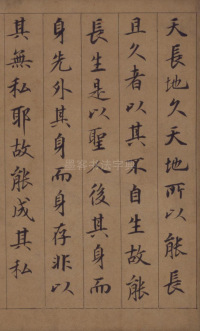 天長地久天地所以能長
且久者以其不自生故能
長生是以聖人後其身而
身先外其身而身存非以
其無私耶故能成其私